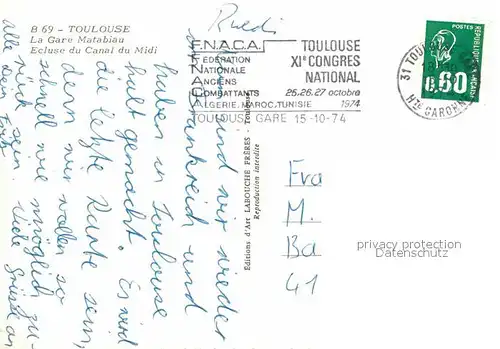 B 69 - TOULOUSE
La Gare Matabiau
Ecluse du Canal du Midi
Ruedi
F.N.A.C.A.
FÉDÉRATION
NATIONALE
ANCIENS
COMBATTANTS
ALGERIE.MAROC.TUNISIE
TOULOUSE
XIe CONGRES
NATIONAL
25.26.27 octobre
1974
TOULOUSE GARE 15-10-74
31 TOULOUSE
Hte GARONNE
POSTES
REPUBLIQUE FRANCAISE
0,60
sind wir wieder
in Frankreich und
haben in Toulouse
halt gemacht. Es wird
die letzte Karte sein,
denn wir wollen so
schnell wie möglich zu-
rück sein. Viele Grüsse an
alle Dein
Editions d'Art LABOUCHE FRÈRES - Toulouse
Reproduction interdite
Fra
M.
Ba
41
privacy protection
Datenschutz